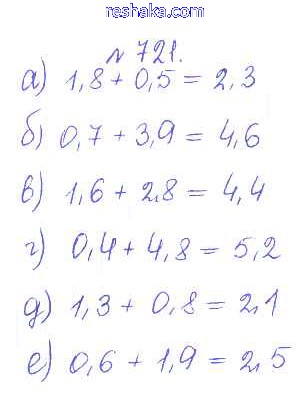 reshaka.com
№ 721.
а) 1,8 + 0,5 = 2,3
б) 0,7 + 3,9 = 4,6
в) 1,6 + 2,8 = 4,4
г) 0,4 + 4,8 = 5,2
д) 1,3 + 0,8 = 2,1
е) 0,6 + 1,9 = 2,5